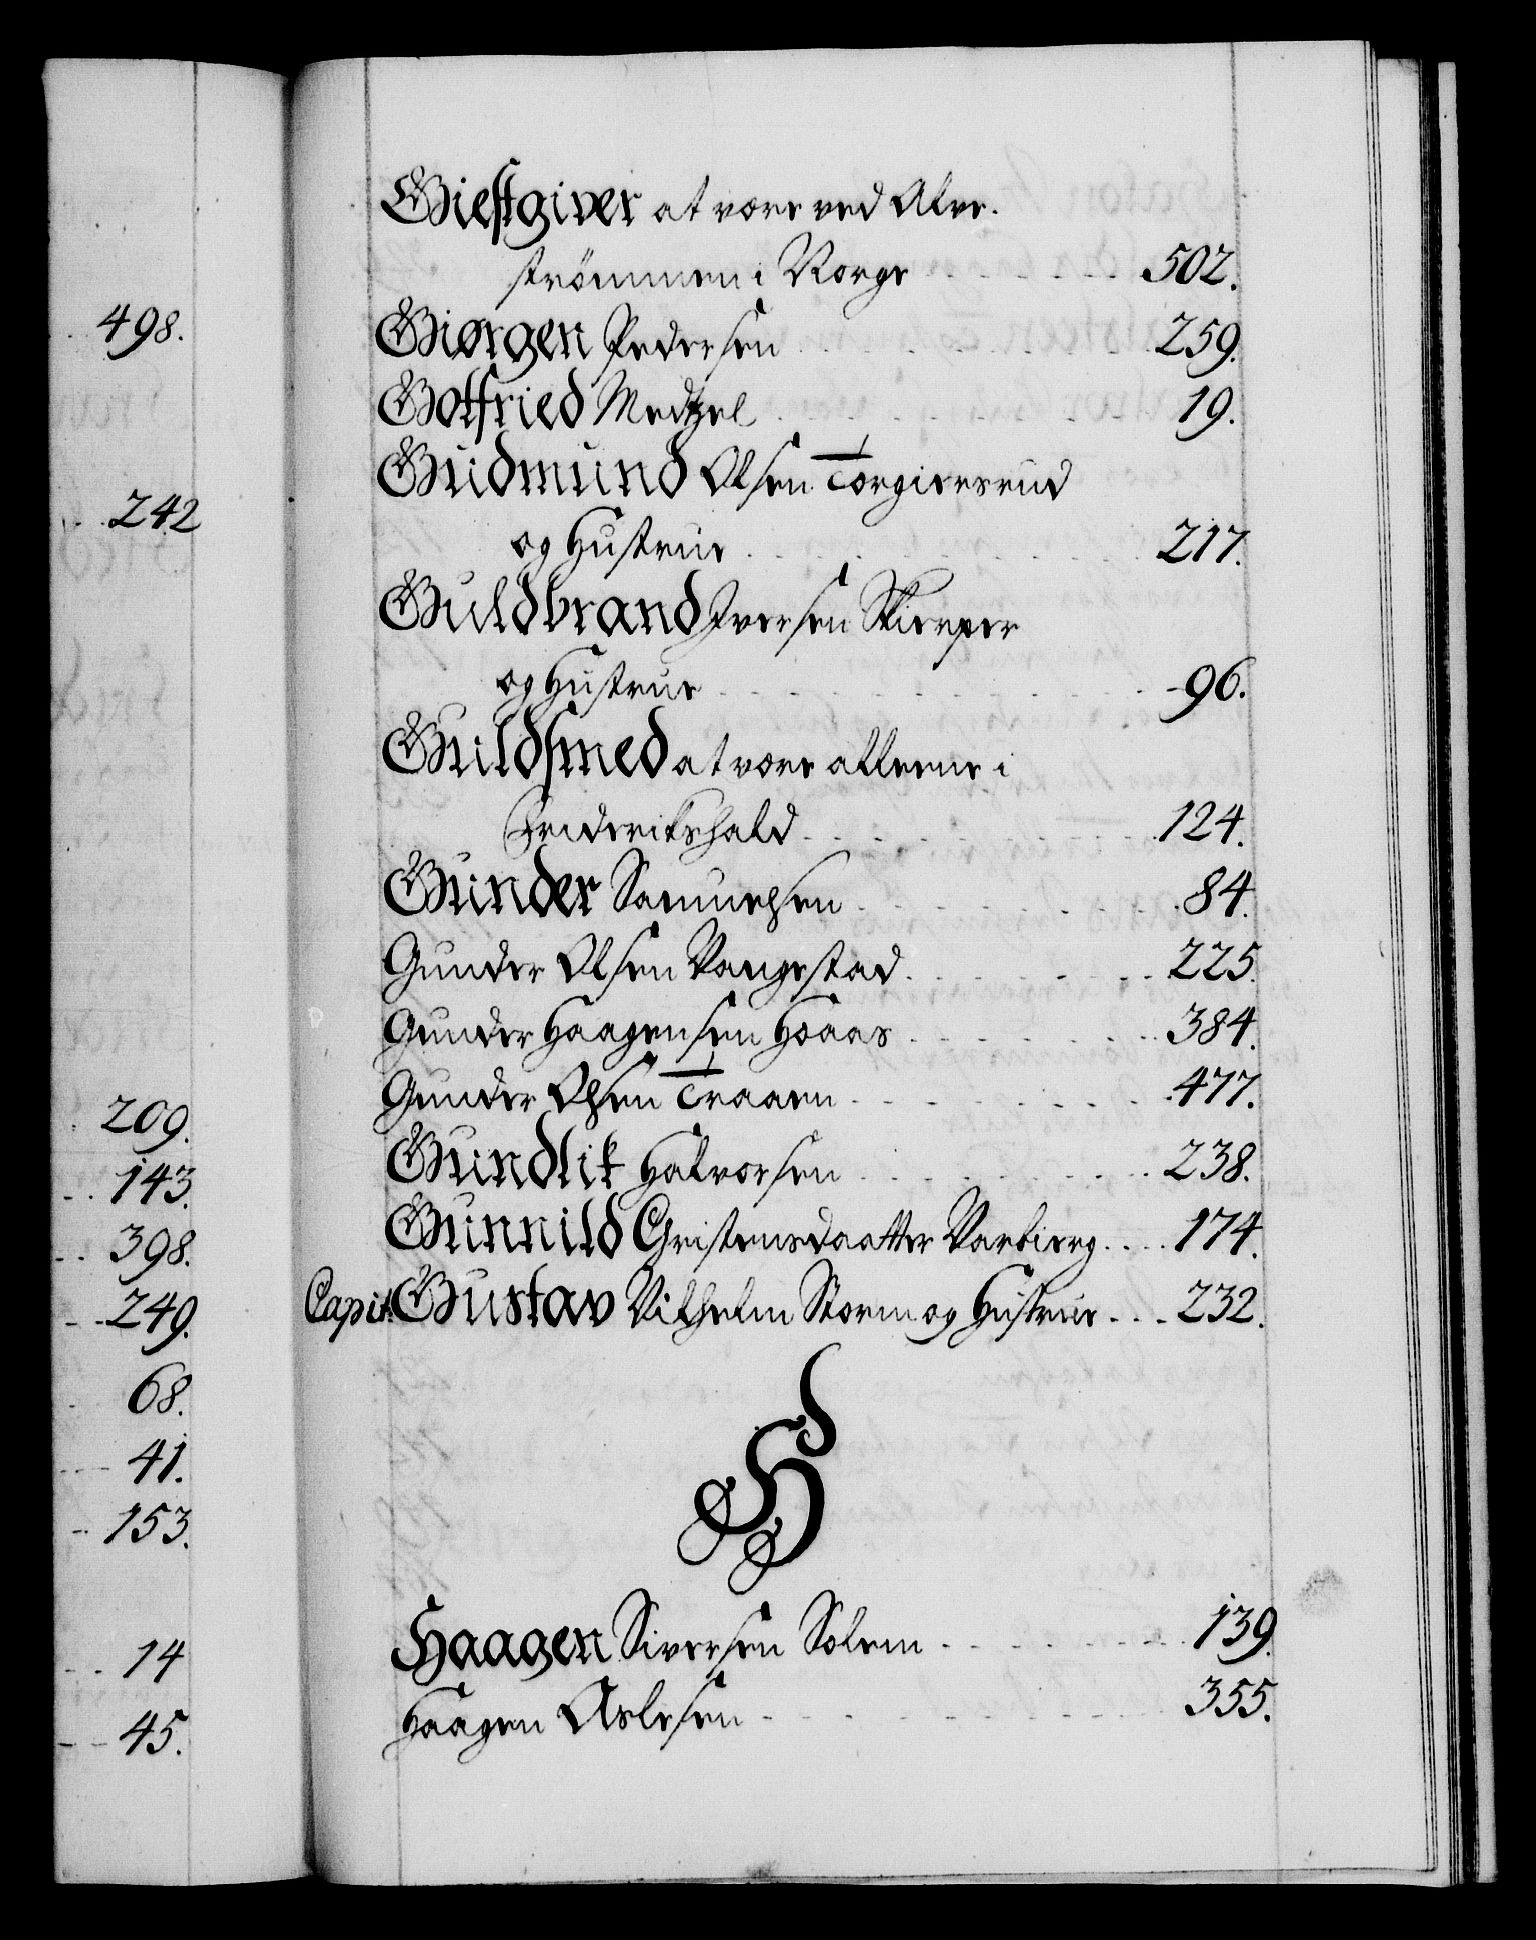 498.
242
209.
143.
398.
249.
68.
41.
153.
14
45.
Giestgiver at være ved Alve-
strømmen i Norge 502.
Giørgen Pedersen 259.
Gotfried Medtzel 19.
Gudmund Olsen Torgiersrud
og Hustrue 217.
Guldbrand Iversen Skierper
og Hustrue 96.
Guldsmed at være alleene i
Friderikshald 124.
Gunder Samuelsen 84.
Gunder Olsen Vangestad 225.
Gunder Haagensen Hoaas 384.
Gunder Olsen Traaen 477.
Gundlik Halvorsen 238.
Gunnild Cristensdaatter Varbierg 174.
Capit. Gustav Vilhelm Storm og Hustrue 232.
H
Haagen Siversen Solem 139.
Haagen Aslesen 355.